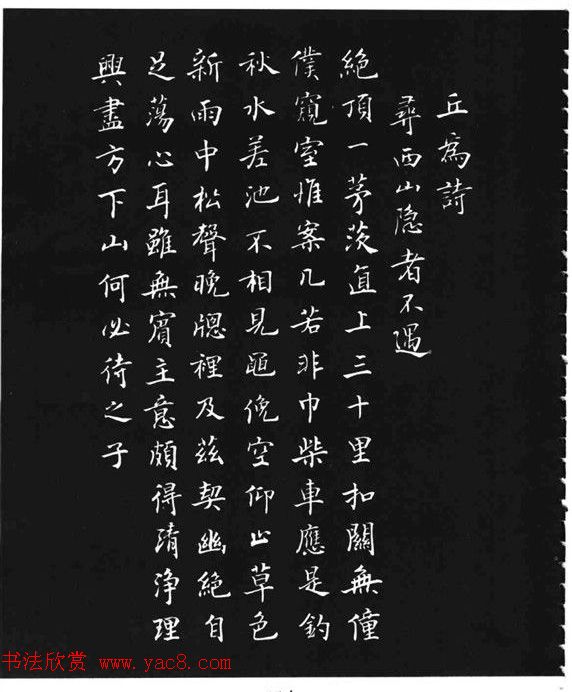 丘為詩
尋西山隐者不遇
絕頂一茅茨直上三十里扣關無僮
僕窺室惟案几若非巾柴車應是釣
秋水差池不相見黽俛空仰止草色
新雨中松聲晚牕裡及兹契幽絕自
足蕩心耳雖無賓主意頗得清淨理
興盡方下山何必待之子
书法欣赏 www.yac8.com